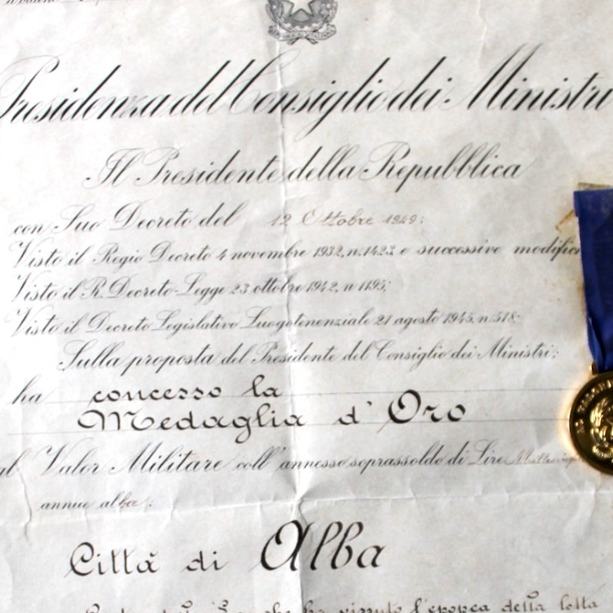 Presidenza del Consiglio dei Ministri
Il Presidente della Repubblica
con Suo Decreto del 12 Ottobre 1949;
Visto il Regio Decreto 4 novembre 1932, n. 1423 e successive modifica
Visto il R. Decreto-Legge 23 ottobre 1942, n 1195;
Visto il Decreto Legislativo Luogotenenziale 21 agosto 1945, n. 518;
Sulla proposta del Presidente del Consiglio dei Ministri;
ha concesso la
Medaglia d'Oro
al Valor Militare coll'annesso soprassoldo di Lire
annue alla:
Città di Alba
che ha vissuto l'epopea della lotta